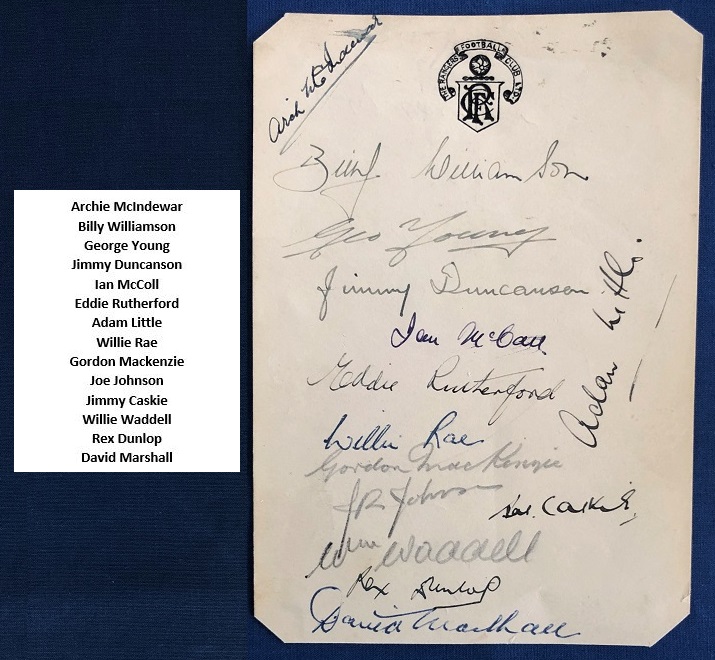 Archie McIndewar
Billy Williamson
George Young
Jimmy Duncanson
Ian McColl
Eddie Rutherford
Adam Little
Willie Rae
Gordon Mackenzie
Joe Johnson
Jimmy Caskie
Willie Waddell
Rex Dunlop
David Marshall
THE RANGERS FOOTBALL CLUB LTD.
RFC
Arch McIndewar
Billy Williamson
Geo Young
Jimmy Duncanson
Adam Little
Ian McColl
Eddie Rutherford
Willie Rae
Gordon MacKenzie
J R Johnson
Jas. Caskie
Wm Waddell
Rex Dunlop
David Marshall